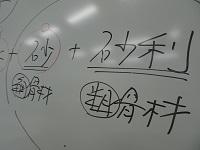 + 砂 + 砂利
細骨材 粗骨材